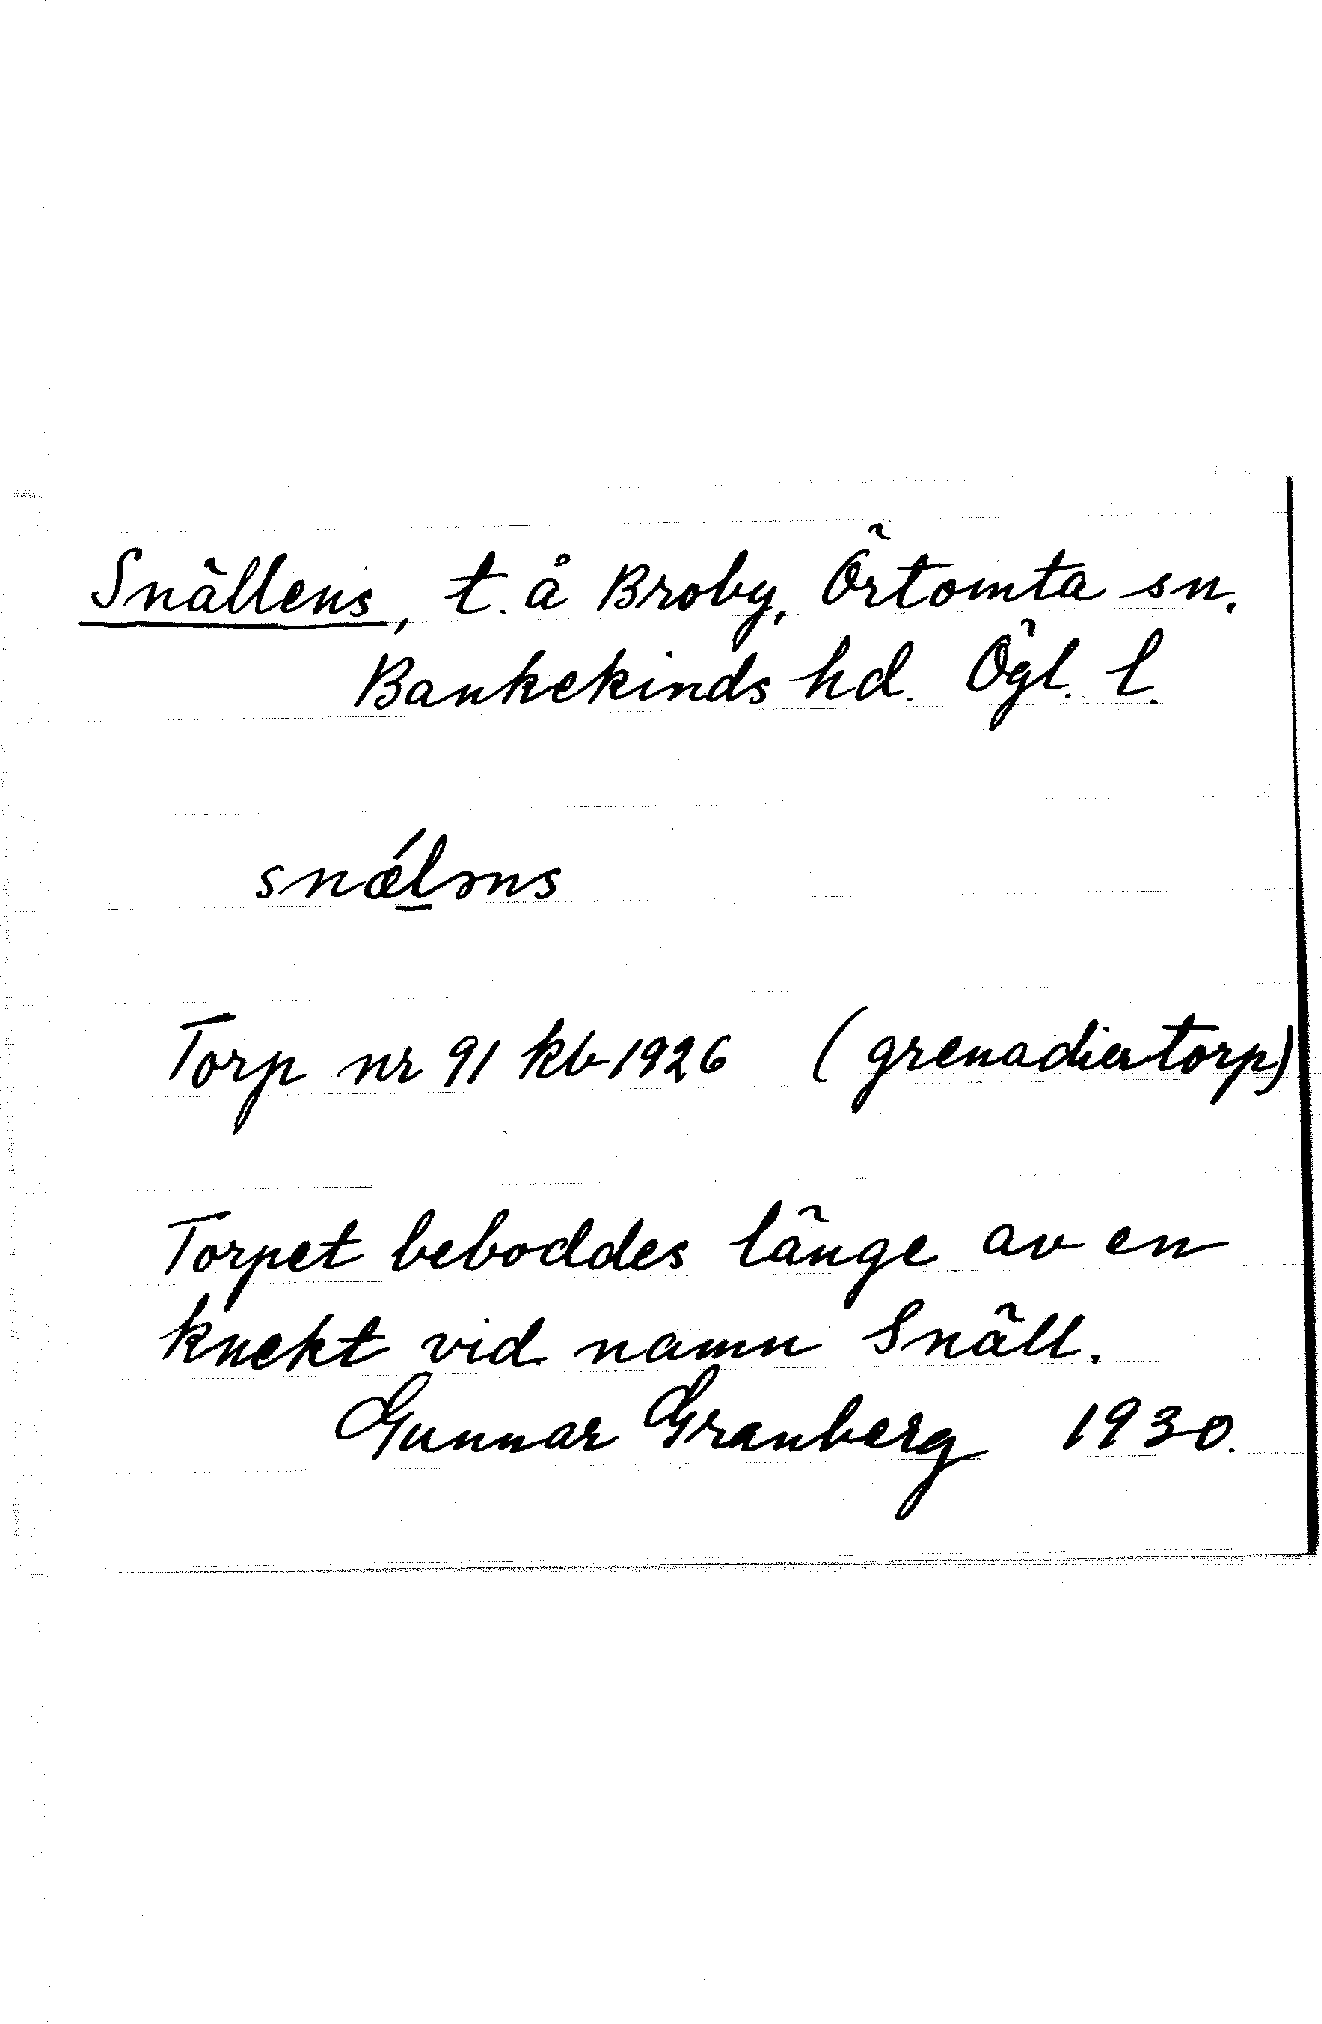 Snällens, t. å Broby, Örtomta sn.
Bankekinds hd. Ögl. l.
snǽləns
Torp nr 91 kb 1926 (grenadiertorp)
Torpet beboddes länge av en
knekt vid namn Snäll.
Gunnar Granberg 1930.